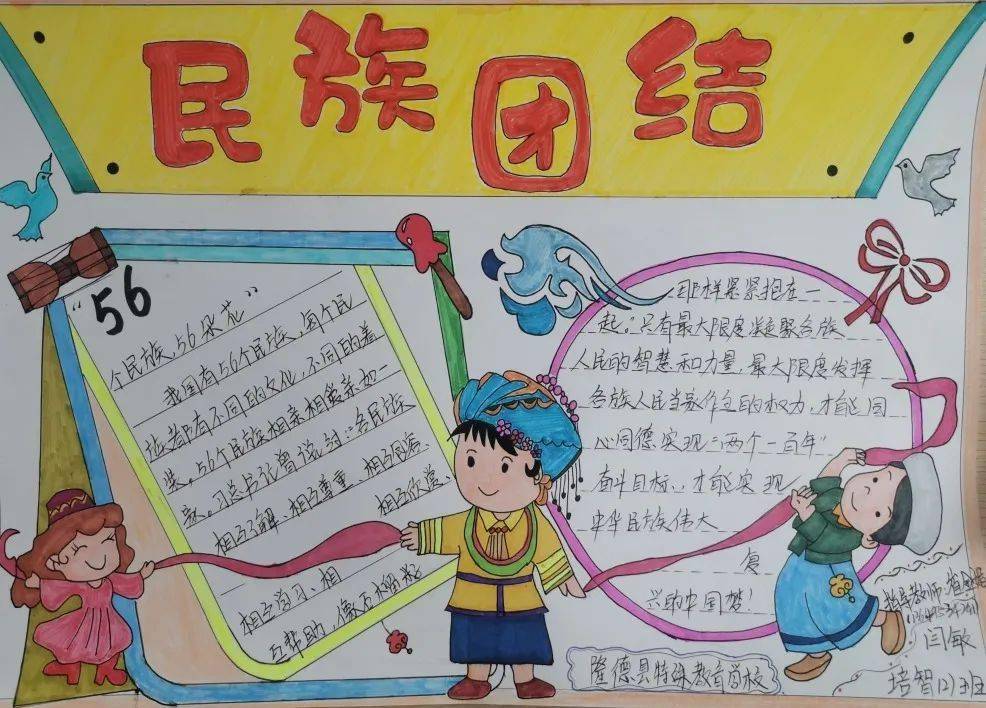 民族团结
"56
个民族、56朵花"
我国有56个民族,每个民
族都有不同的文化,不同的着
装。56个民族相亲相爱亲如一
家。习总书记曾说过:"各民族
相互了解、相互尊重、相互包容、
相互欣赏、
相互学习、相
互帮助,像石榴籽
那样紧紧抱在一
起。"只有最大限度聚合族
人民的智慧和力量,最大限度发挥
各族人民当家作主的权力,才能同
心同德实现"两个一百年"
奋斗目标,才能实现
中华民族伟大
复
兴的中国梦!
隆德县特殊教育学校
指导教师:
闫敏
培智(2)班